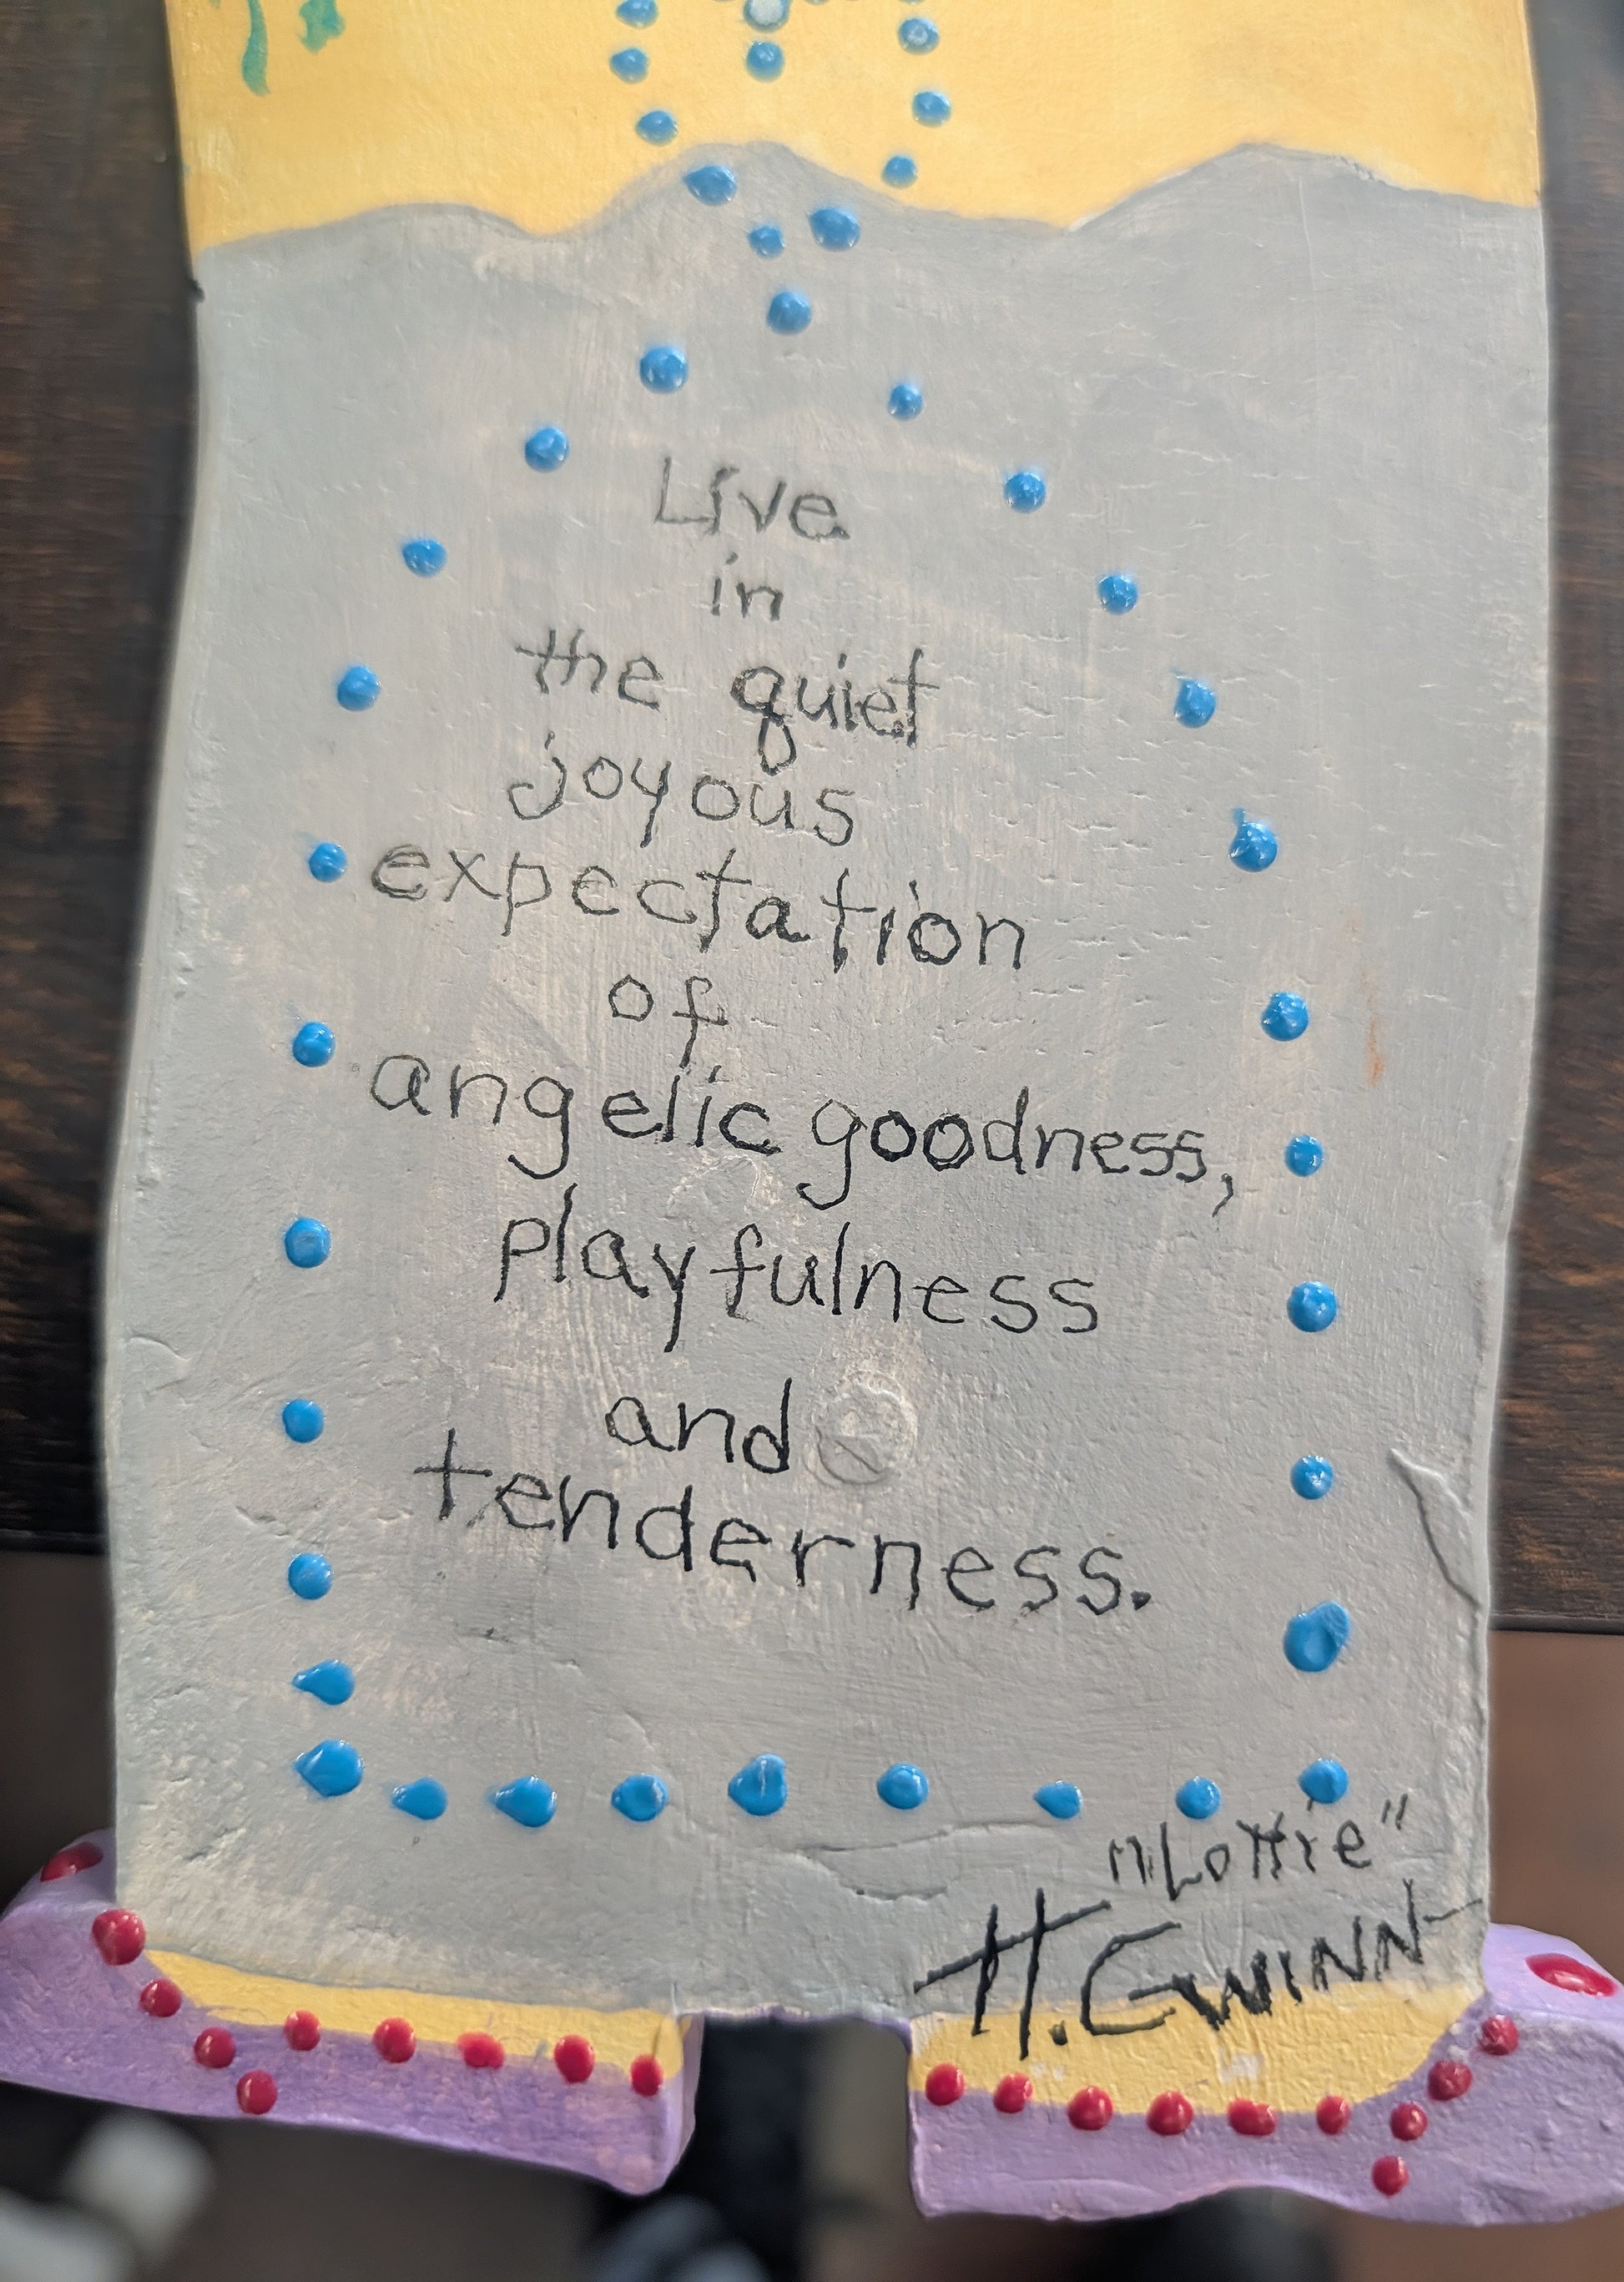 Live
in
the quiet
joyous
expectation
of
angelic goodness,
playfulness
and
tenderness.
"Lottie"
H. GWINN